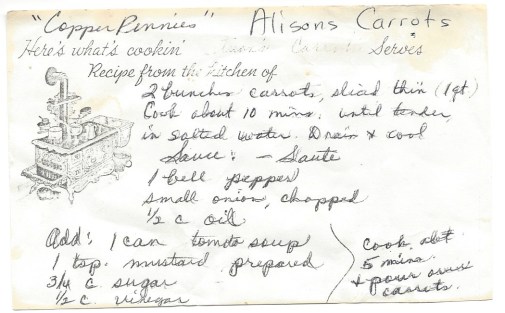 "Copper Pennies" Alisons Carrots
Here's what's cookin' Serves
Recipe from the kitchen of
2 bunches carrots, sliced thin (1 qt)
Cook about 10 mins. until tender,
in salted water. Drain & cool
Sauce: - Saute
1 bell pepper
small onion, chopped
1/2 c oil
Add: 1 can tomato soup
1 tsp. mustard prepared
3/4 c sugar
1/2 c. vinegar
Cook abt
5 mins.
& pour over
carrots.